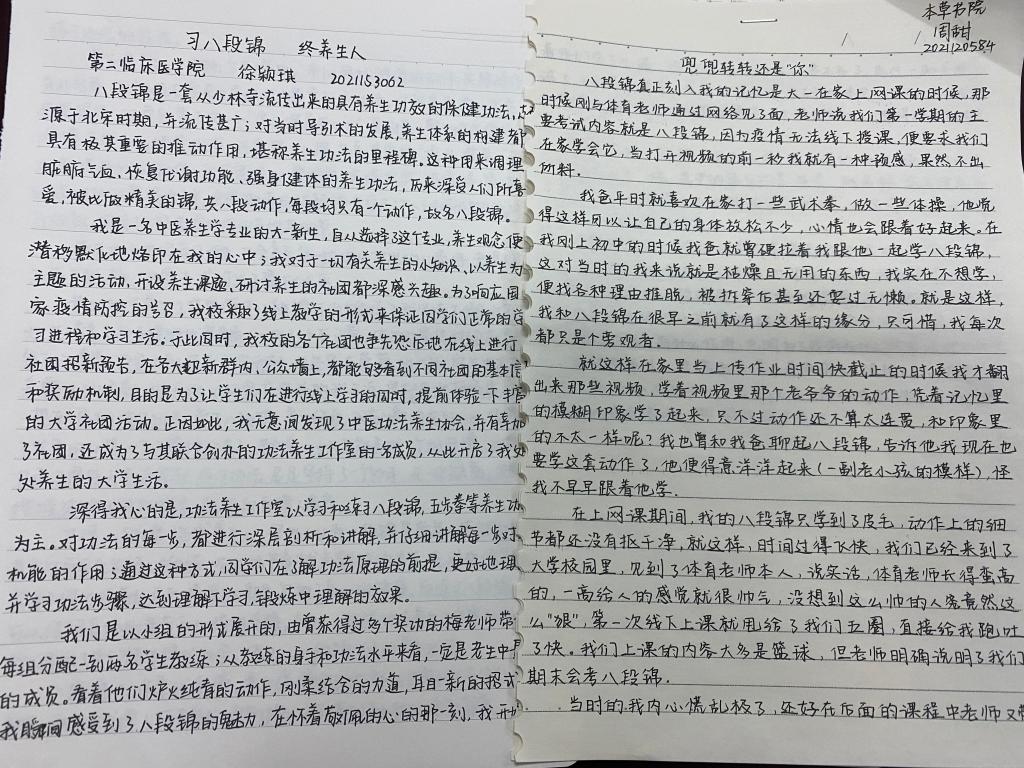 习八段锦 终养生人
第二临床医学院 徐颖琪 2021153062
八段锦是一套从少林寺流传出来的具有养生功效的保健功法,
源于北宋时期,并流传甚广;对当时导引术的发展、养生体系的构建有
具有极其重要的推动作用,堪称养生功法的里程碑。这种用来调理
脏腑气血、恢复代谢功能、强身健体的养生功法,历来深受人们所喜
爱,被比做精美的锦,共八段动作,每段均只有一个动作,故名八段锦。
我是一名中医养生学专业的大一新生,自从选择了这个专业,养生观念便
潜移默化地烙印在我的心中;我对于一切有关养生的小知识、以养生为
主题的活动,开设养生课题、研讨养生的社团都深感兴趣。为了响应国
家疫情防控的号召,我校采取了线上教学的形式来保证同学们正常的学
习进程和学习生活。于此同时,我校的各个社团也争先恐后地在线上进行
社团招新预告,在各大迎新群内、公众墙上,都能够看到不同社团的基本信
和奖励机制,目的是为了让学生们在进行线上学习的同时,提前体验一下丰富
的大学社团活动。正因如此,我无意间发现了中医功法养生协会,并有幸加
了社团,还成为了与其联合创办的功法养生工作室的一名成员,从此开启了我处
处养生的大学生活。
深得我心的是,功法养生工作室以学习和练习八段锦,五步拳等养生功
为主。对功法的每一步,都进行深层剖析和讲解,并仔细讲解每一步对
机能的作用;通过这种方式,同学们在了解功法原理的前提,更好地理
并学习功法步骤,达到理解下学习,锻炼中理解的效果。
我们是以小组的形式展开的,由曾获得过多个奖功的梅老师带
每组分配一到两名学生教练;从教练的身手和功法水平来看,一定是老生中
的成员。看着他们炉火纯青的动作,刚柔结合的力道,耳目一新的招式
我瞬间感受到了八段锦的魅力,在怀着敬佩的心的那一刻,我开
本草书院
周甜
2021120584
兜兜转转还是“你”
八段锦真正刻入我的记忆是大一在家上网课的时候,那
时候刚与体育老师通过网络见了面,老师说我们第一学期的主
要考试内容就是八段锦,因为疫情无法线下授课,便要求我们
在家学会它,当打开视频的前一秒我就有一种预感,果然不出
所料.
我爸平时就喜欢在家打一些武术拳,做一些体操,他觉
得这样可以让自己的身体放松不少,心情也会跟着好起来。在
我刚上初中的时候我爸就曾硬拉着我跟他一起学八段锦,
这对当时的我来说就是枯燥且无用的东西,我实在不想学,
便找各种理由推脱,被拆穿后甚至还耍过无赖。就是这样,
我和八段锦在很早之前就有了这样的缘分,只可惜,我每次
都只是个旁观者.
就这样在家里当上传作业时间快截止的时候我才翻
出来那些视频,学着视频里那个老爷爷的动作,凭着记忆里
的模糊印象学了起来,只不过动作还不算太连贯,和印象里
的不太一样呢?我也曾和我爸聊起八段锦,告诉他我现在也
要学这套动作了,他便得意洋洋起来(一副老小孩的模样)怪
我不早早跟着他学.
在上网课期间,我的八段锦只学到了皮毛,动作上的细
节都还没有抠干净,就这样,时间过得飞快,我们已经来到了
大学校园里,见到了体育老师本人,说实话,体育老师长得蛮高
的,一高给人的感觉就很帅气,没想到这么帅的人竟然这
么“狠”,第一次线下上课就甩给了我们五圈,直接给我跑吐
了快。我们上课的内容大多是篮球,但老师明确说明了我们
期末会考八段锦.
当时的我内心慌乱极了,还好在后面的课程中老师又带